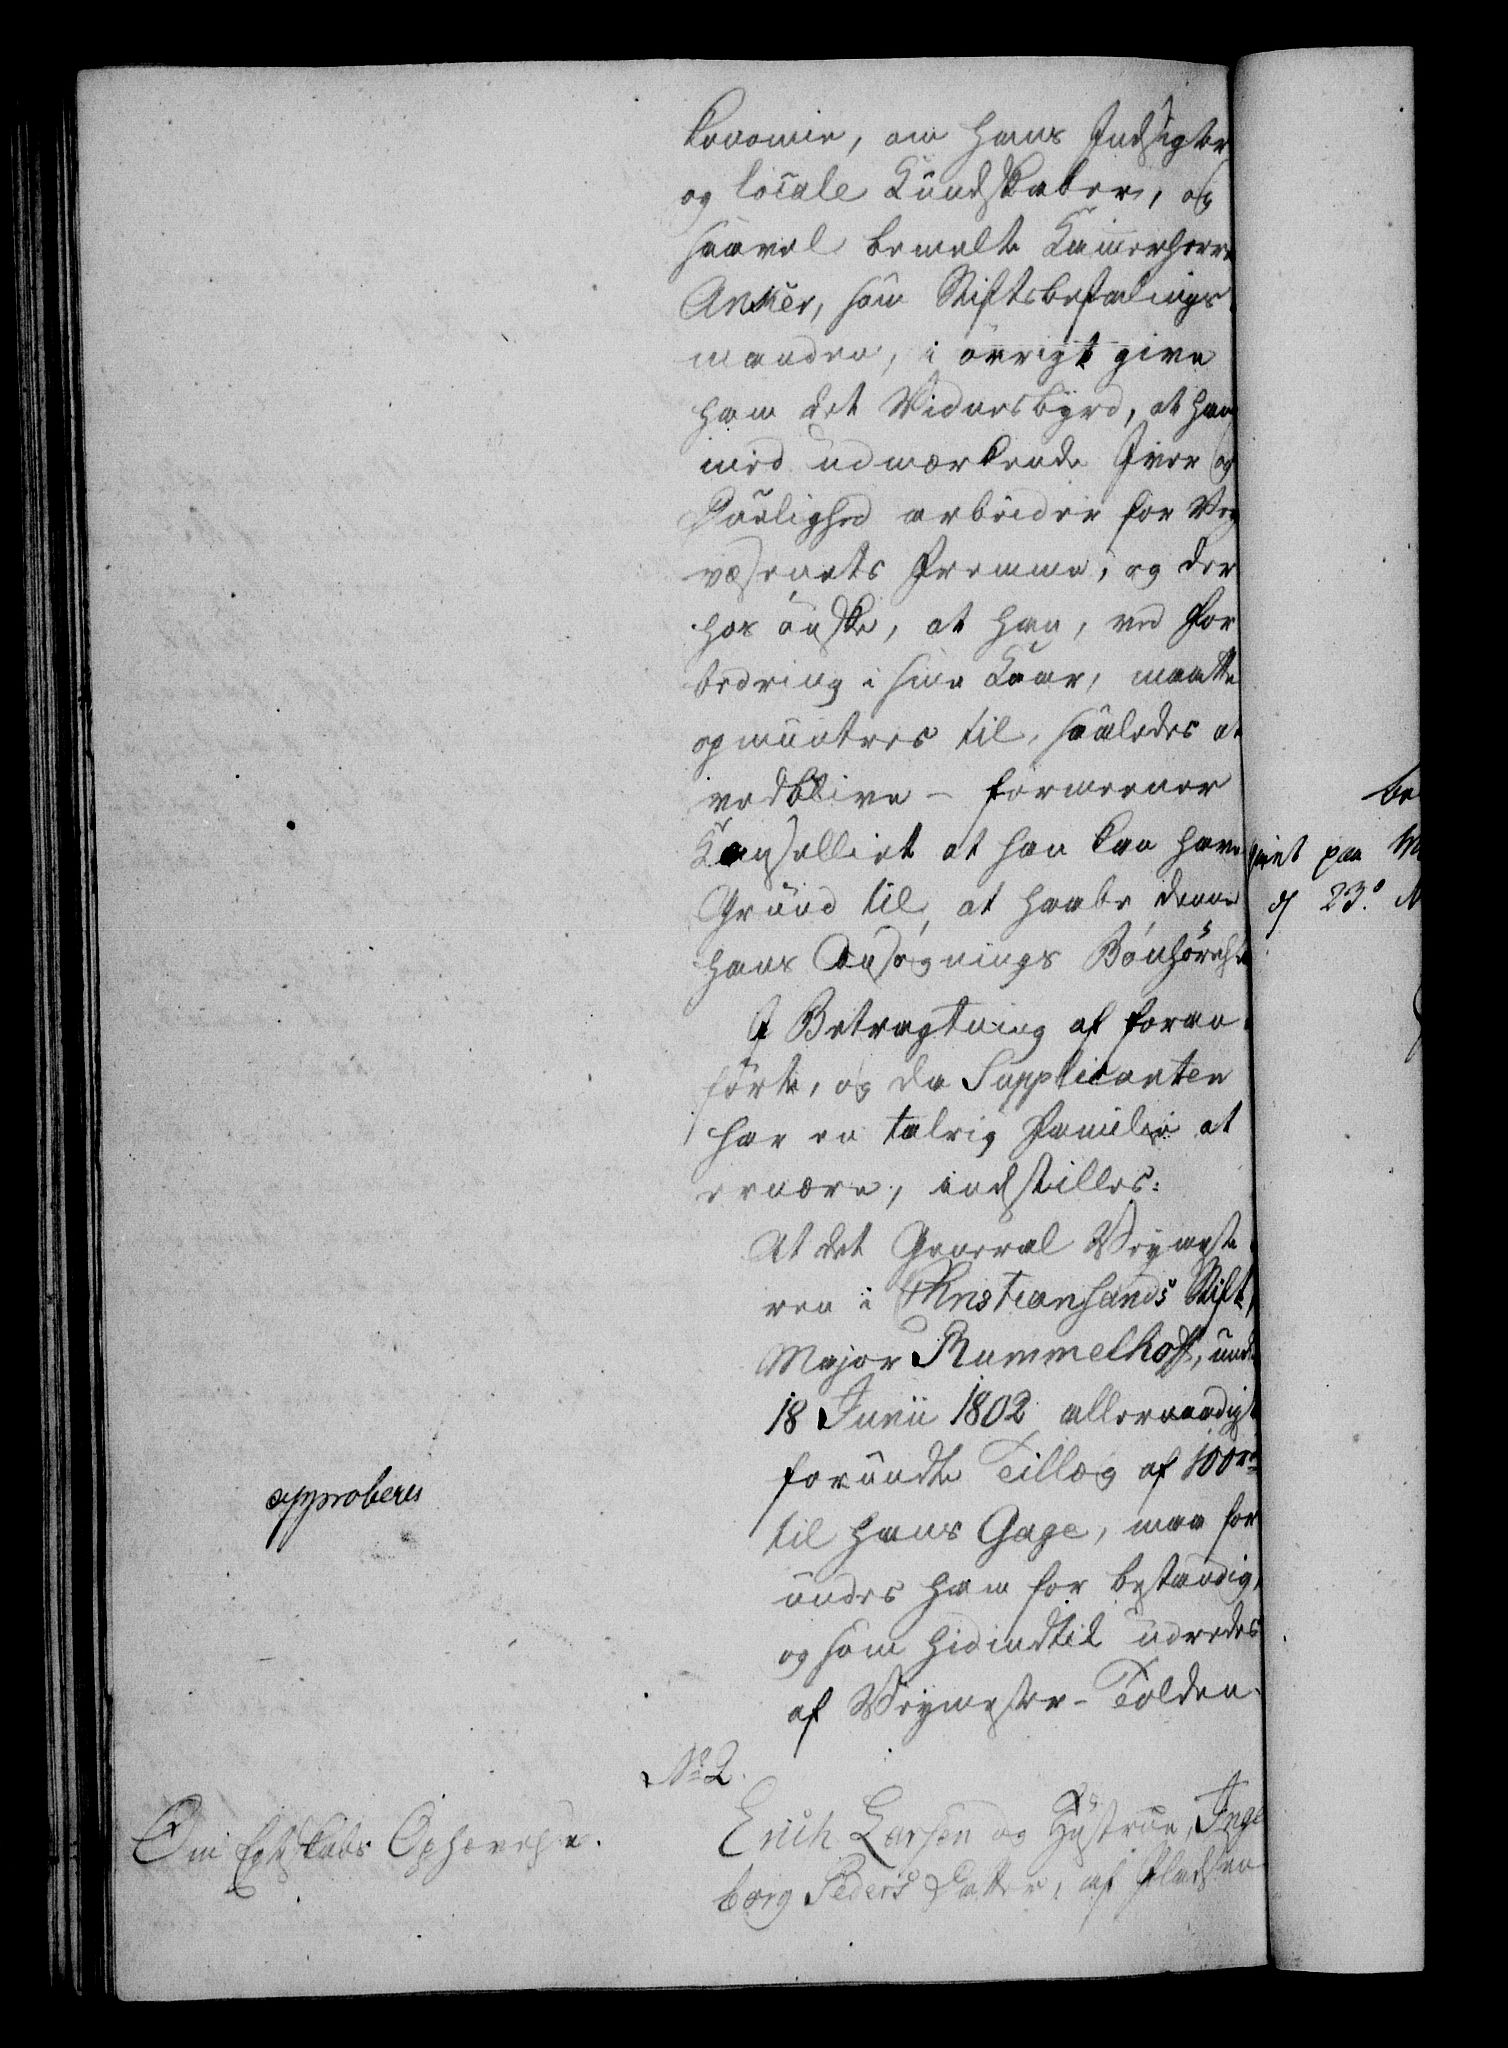 konomie, om hans Indsigter
og locale Kundskaber, og
saavel bemelte Kammerherre
Anker, som Stiftsbefalings
manden, i øvrigt give
ham det Vidnesbyrd, at han
med udmærkende Iver og
Duelighed arbeider for Vey
væsenets Fremme, og der
hos ønske, at han, ved For
bedring i sine Kaar, maatte
opmuntres til, saaledes at
vedblive - formeener
Kanselliet at han kan have
Grund til at haabe denne
hans Ansøgnings Bønhørelse
I Betragtning af foran
førte, og da Supplicanten
har en talrig Familie at
ernære, indstilles:
At det General Veymeste
ren i Christiansands Stift,
Major Rummelhoff, under
18 Junii 1802 allernaadigst
forundte Tillæg af 100 rd
til hans Gage, maa for
undes ham for bestandig,
og som hidindtil udredes
af Veymester-Tolden.
approberes
No 2.
Om Egteskabs Ophævelse.
Erich Larsen og Hustrue, Inge
borg Peders Datter, af Pladsen
be
paa
d 23.